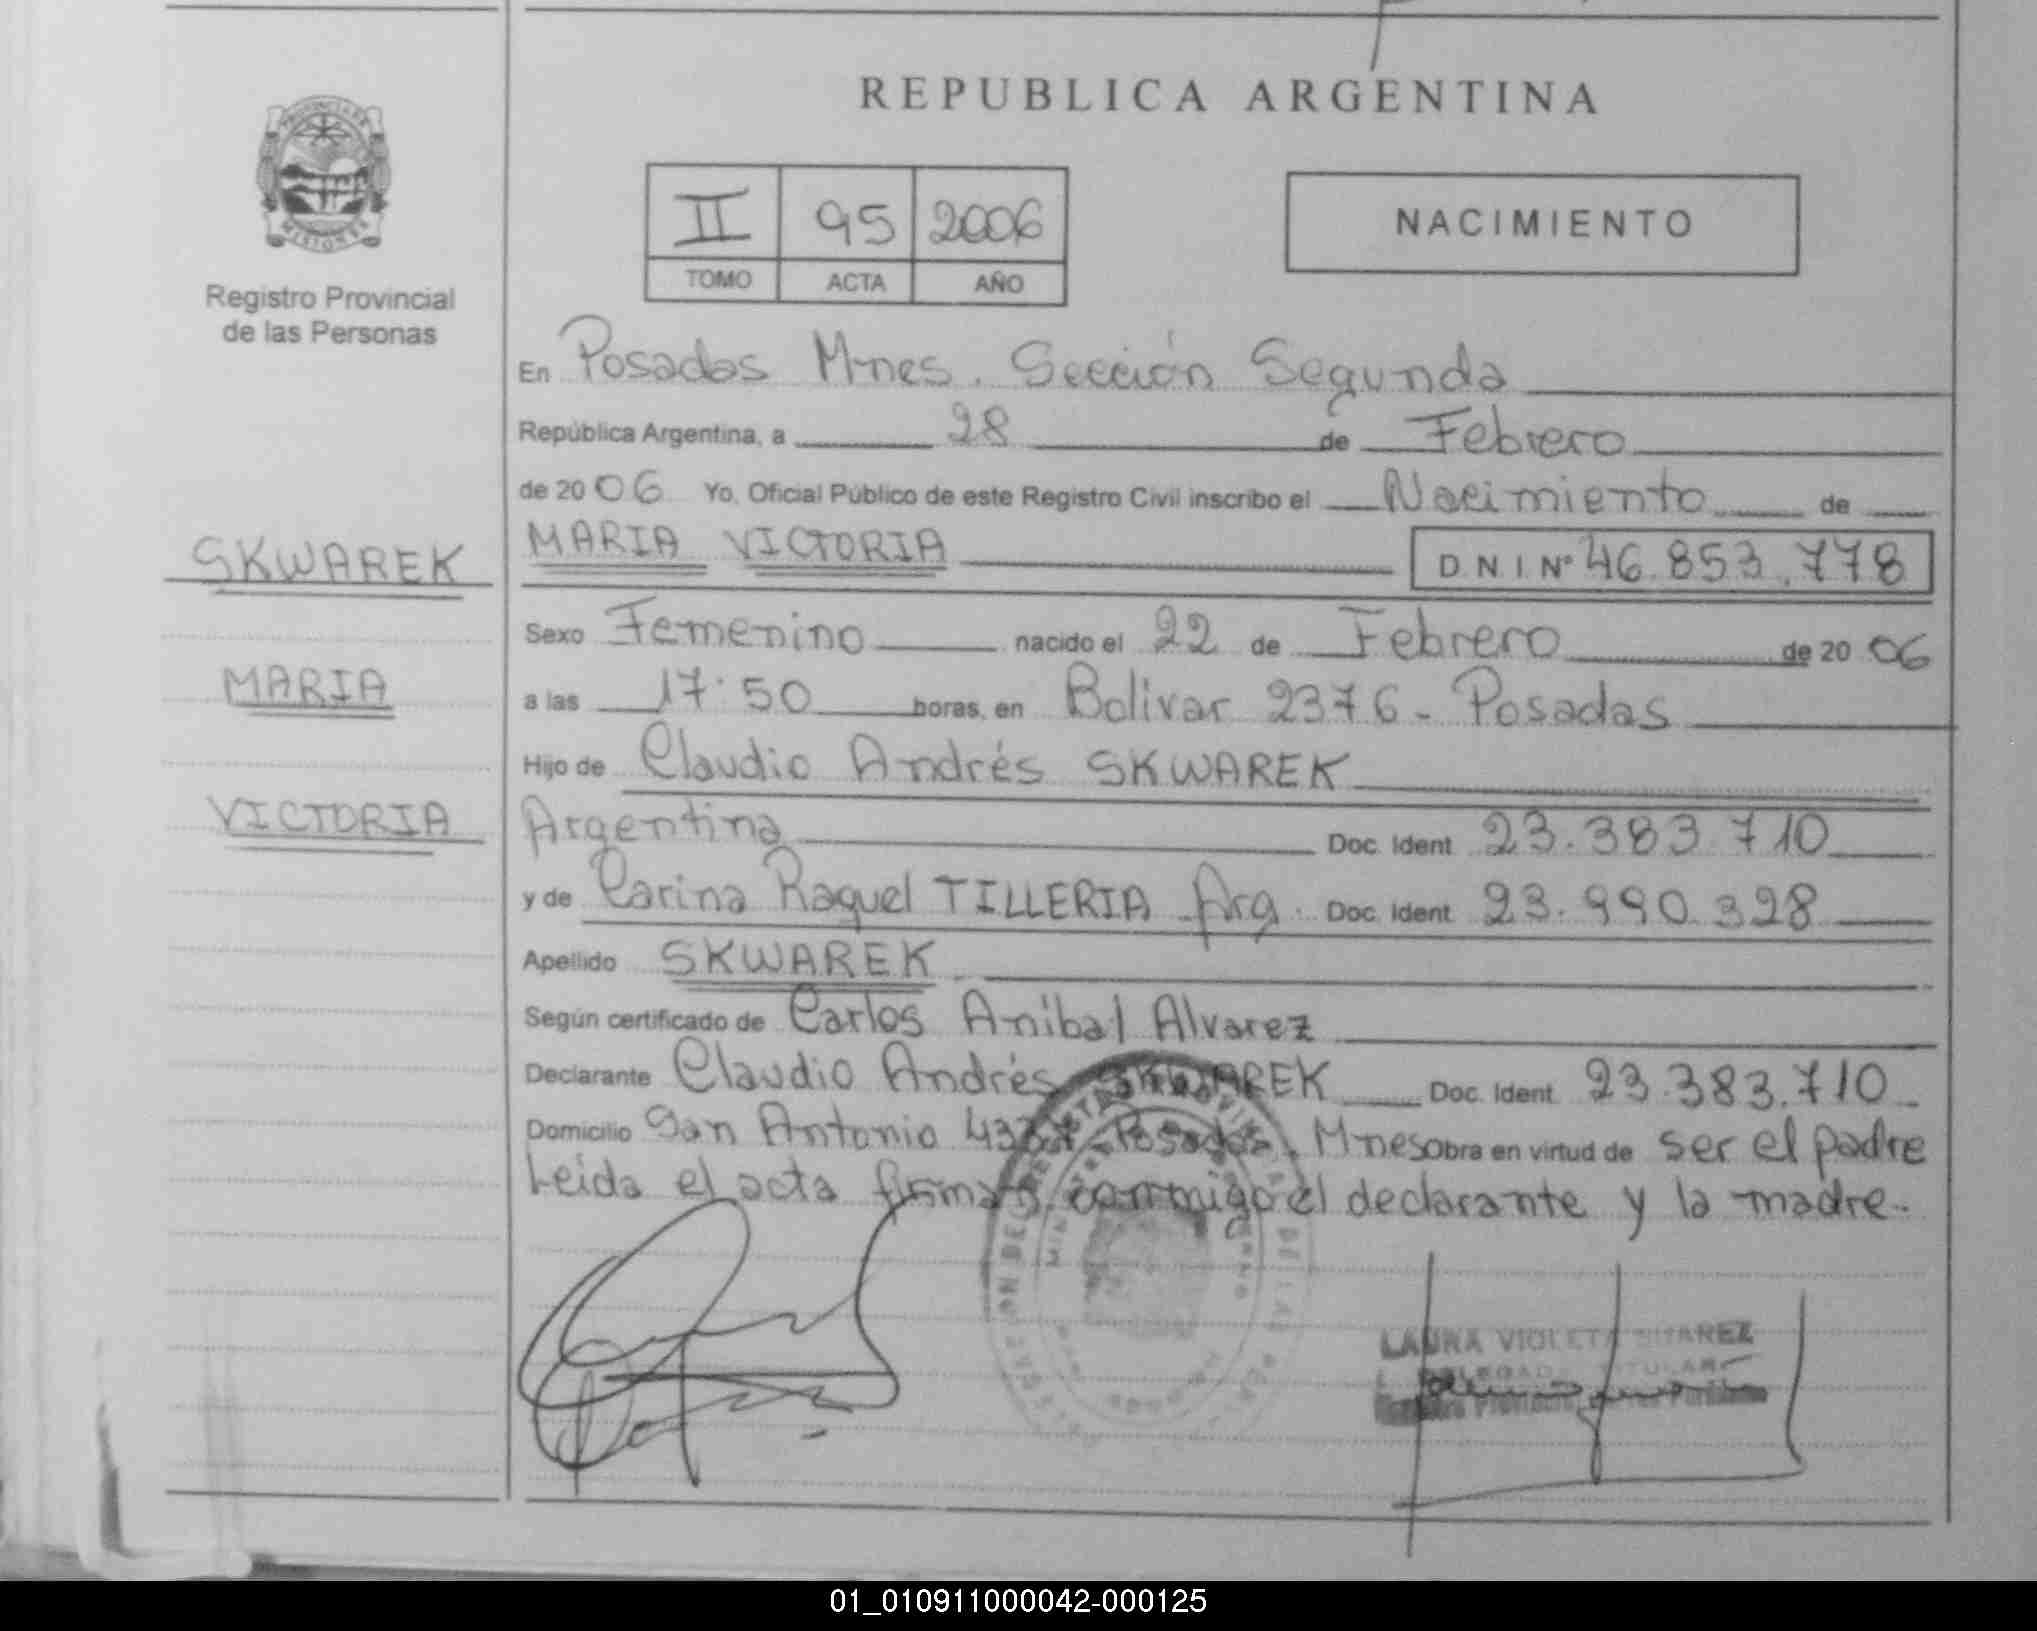 REPUBLICA ARGENTINA
PROVINCIA DE
MISIONES
Registro Provincial
de las Personas
II 95 2006
TOMO ACTA AÑO
NACIMIENTO
En Posadas Mnes. Sección Segunda
República Argentina, a 28 de Febrero
de 2006 Yo, Oficial Público de este Registro Civil inscribo el Nacimiento de
SKWAREK
MARIA VICTORIA D.N.I. Nº 46.853.778
Sexo Femenino nacido el 22 de Febrero de 2006
MARIA
a las 17:50 horas, en Bolivar 2376 - Posadas
Hijo de Claudio Andrés SKWAREK
VICTORIA
Argentina Doc. Ident. 23.383.710
y de Carina Raquel TILLERIA Arg. Doc. Ident. 23.990.328
Apellido SKWAREK
Según certificado de Carlos Anibal Alvarez
Declarante Claudio Andrés SKWAREK Doc. Ident. 23.383.710
Domicilio San Antonio Posadas. Mnes Obra en virtud de ser el padre
Leida el acta firman conmigo el declarante y la madre.
LAURA VIOLETA SUAREZ
DELEGADA TITULAR
01_010911000042-000125